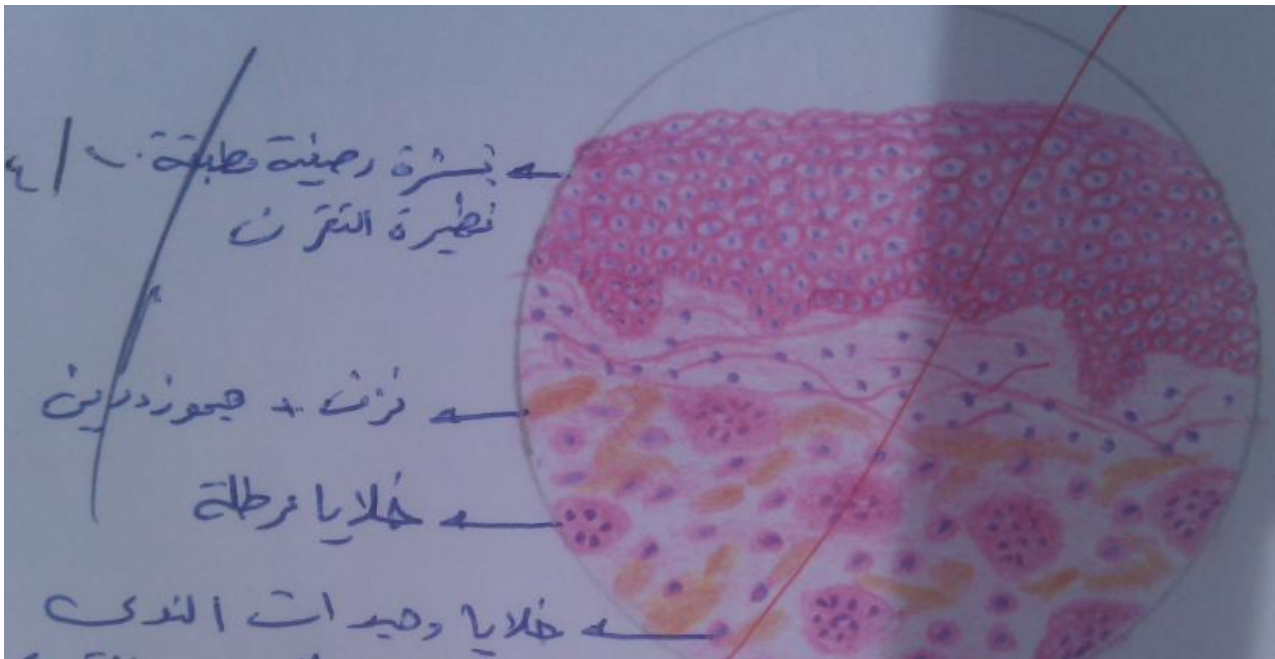 بشرة رصفية مطبقة
نظيرة التقرن
نزف + هيموزدرين
خلايا عرطلة
خلايا وحيدات النوى